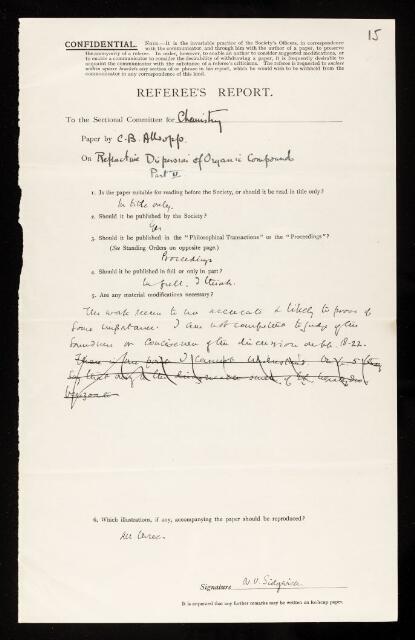 15
CONFIDENTIAL. NOTE.—It is the invariable practice of the Society's Officers, in correspondence
with the communicator and through him with the author of a paper, to preserve
the anonymity of a referee. In order, however, to enable an author to consider suggested modifications, or
to enable a communicator to consider the desirability of withdrawing a paper, it is frequently desirable to
acquaint the communicator with the nature of a referee's criticisms. The referee is requested to enclose
within square brackets any section of or phrase in his report, which he would wish to be withheld from the
communicator in any correspondence of this kind.
REFEREE'S REPORT.
To the Sectional Committee for Chemistry
Paper by C. B. Allsopp
On Refractive Dispersion of Organic Compound
Part II
1. Is the paper suitable for reading before the Society, or should it be read in title only?
In title only.
2. Should it be published by the Society?
Yes
3. Should it be published in the "Philosophical Transactions" or the "Proceedings"?
(See Standing Orders on opposite page.)
Proceedings
4. Should it be published in full or only in part?
In full, I think.
5. Are any material modifications necessary?
The work seems to be accurate & likely to prove of
some importance. I am not competent to judge of the
soundness or conciseness of the discussion on pp. 18-22.
6. Which illustrations, if any, accompanying the paper should be reproduced?
All three.
Signature N. V. Sidgwick
It is requested that any further remarks may be written on foolscap paper.